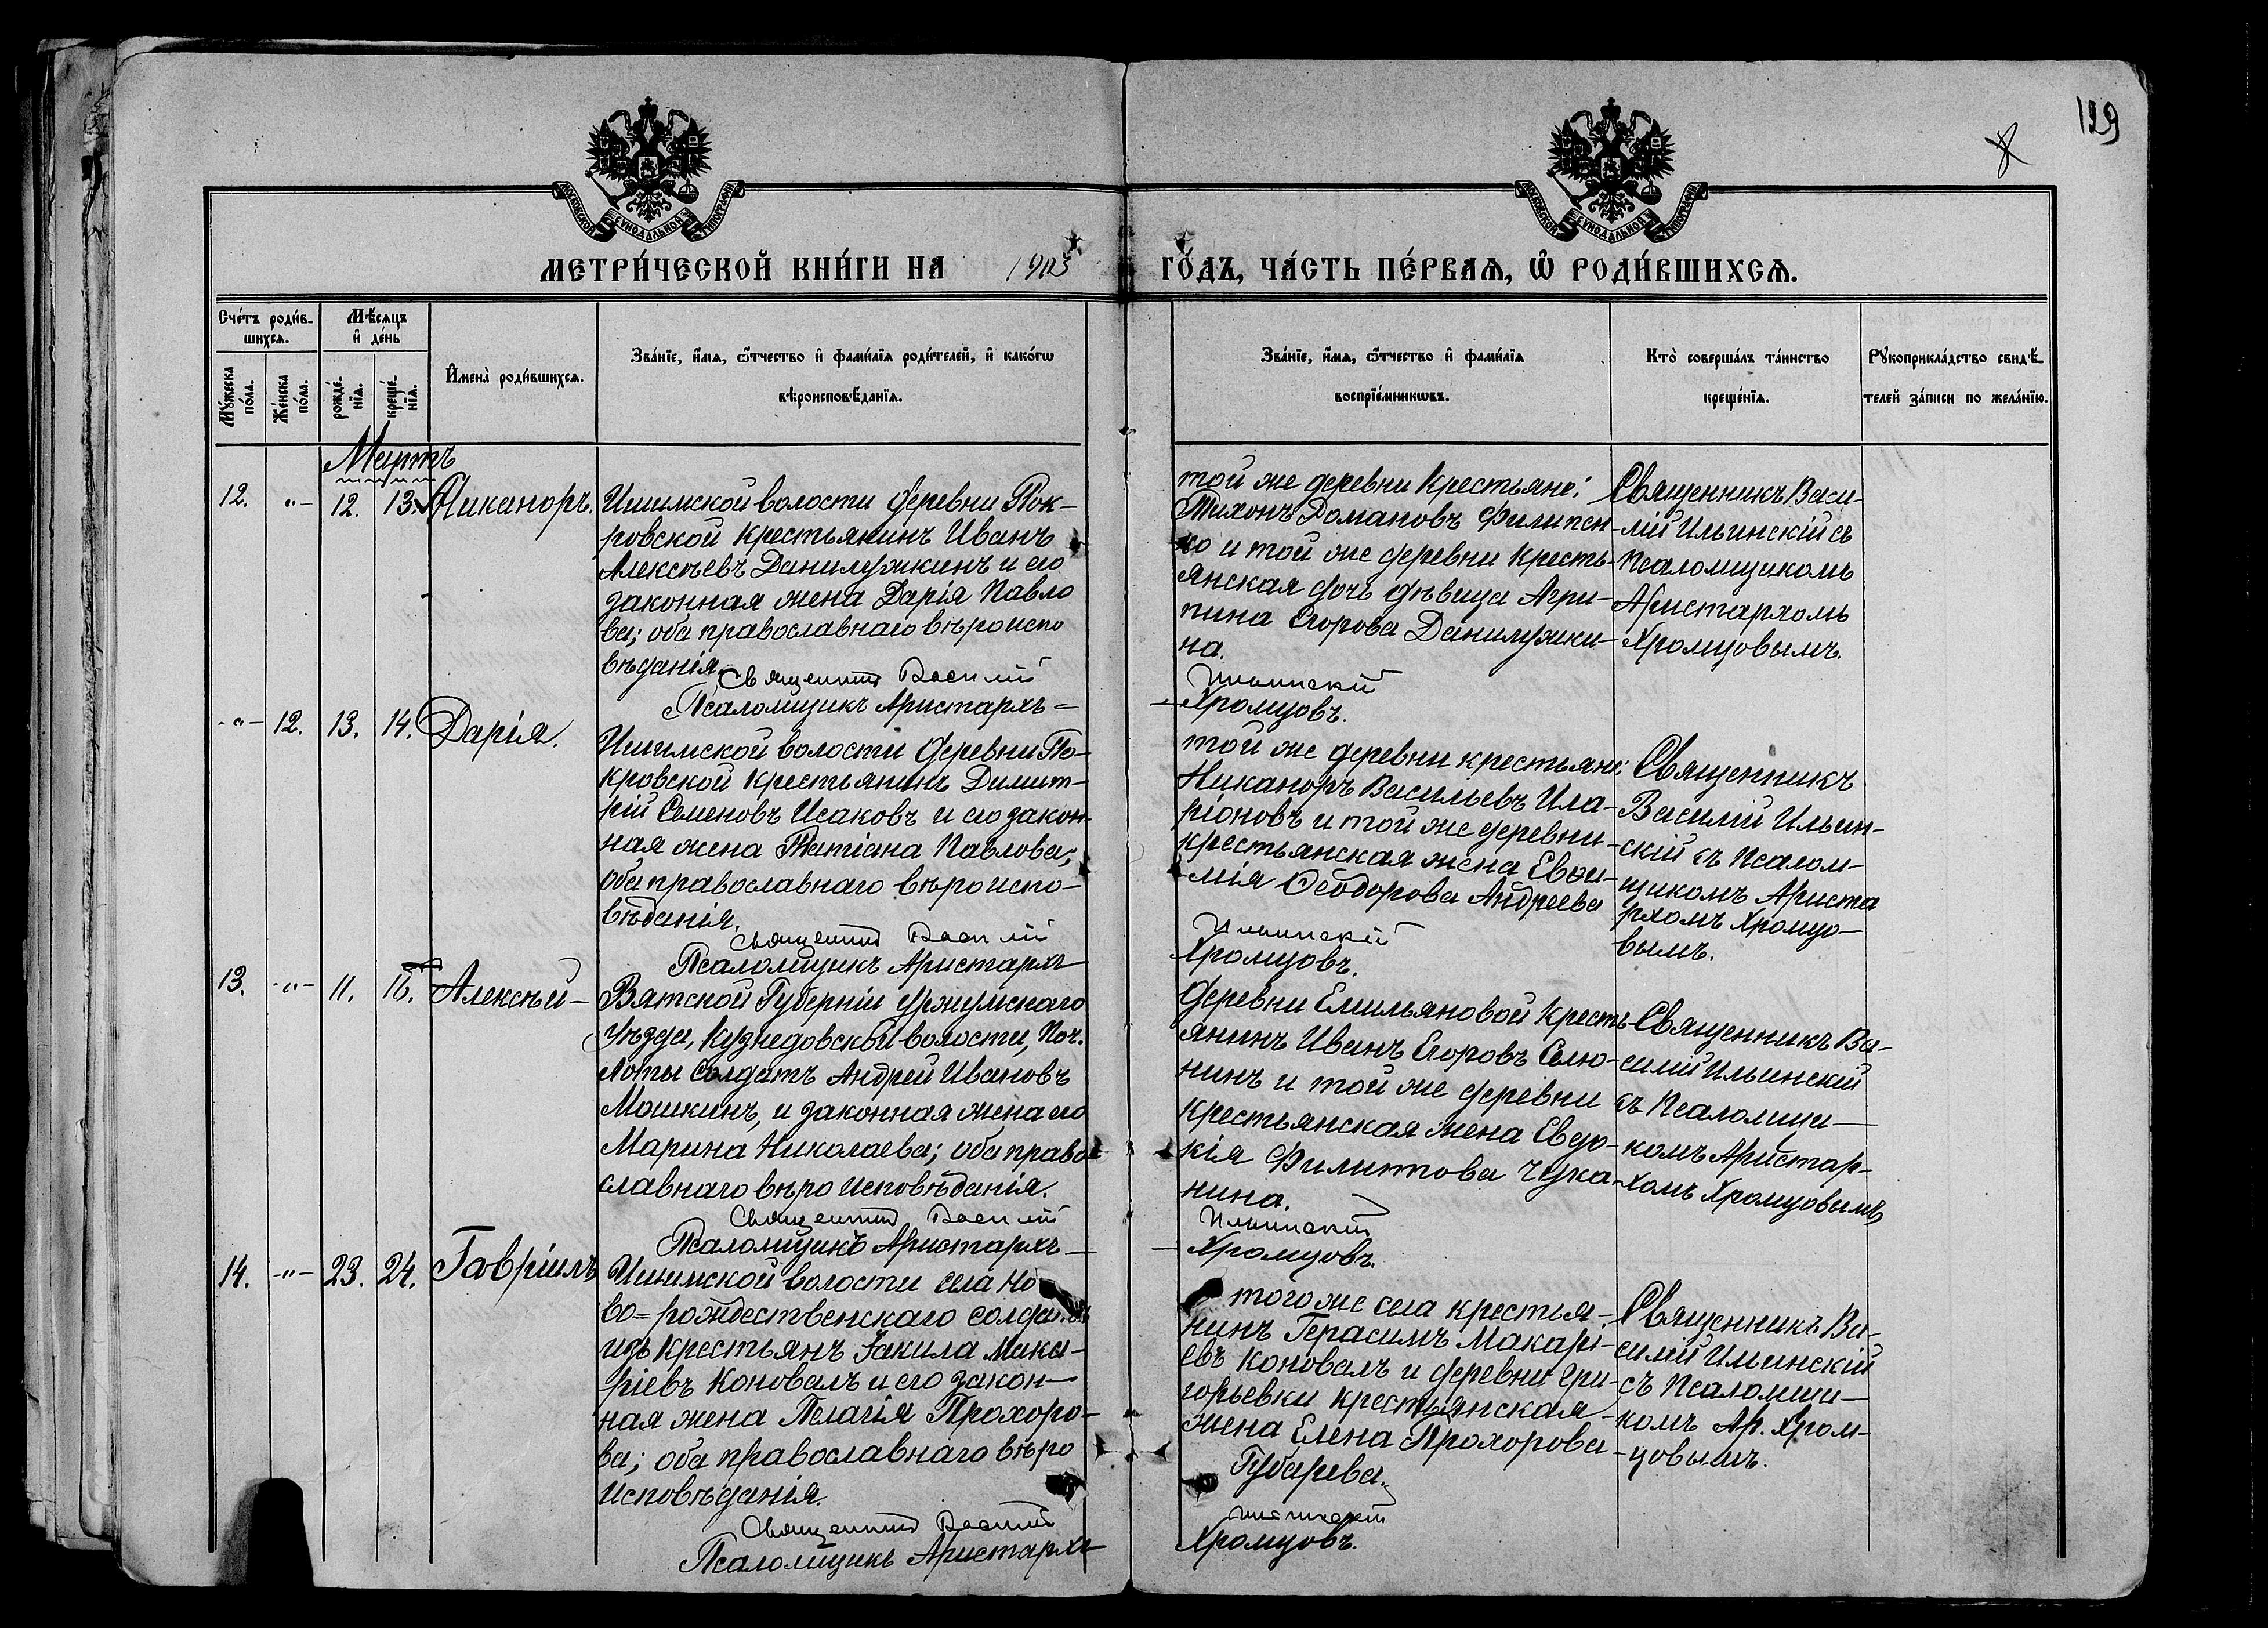 129
МОСКОВСКОЙ СѴНОДАЛЬНОЙ ТИПОГРАФІИ
МОСКОВСКОЙ СѴНОДАЛЬНОЙ ТИПОГРАФІИ
МЕТРИ́ЧЕСКОЙ КНИ́ГИ НА 1903 ГО́ДЪ, ЧА́СТЬ ПЕ́РВАѦ, Ѽ РОДИ́ВШИХСѦ.
Сче́тъ роди́в-
шихсѧ.
Мꙋ́жеска
по́ла.
Же́нска
по́ла.
Мѣ́сѧцъ
и҆ де́нь
рожде́-
нїѧ.
креще́-
нїѧ.
И҆мена̀ роди́вшихсѧ.
Зва́нїе, и҆́мѧ, ѻ҆́тчество и҆ фами́лїѧ роди́телей, и҆ како́гѡ
вѣроисповѣ́данїѧ.
Зва́нїе, и҆́мѧ, ѻ҆́тчество и҆ фами́лїѧ
воспрїе́мникѡвъ.
Кто̀ соверша́лъ та́инство
креще́нїѧ.
Рꙋкоприкла́дство свидѣ́-
телей за́писи по жела́нїю.
Мартъ
12. -"- 12. 13. Никаноръ.
Ишимской волости деревни Пок-
ровской крестьянинъ Иванъ
Алексѣевъ Данилушкинъ и его
законная жена Дарія Павло
ва; оба православнаго вѣроиспо
вѣданія.
Священникъ Василій
Псаломщикъ Аристархъ =
той же деревни крестьяне:
Тихонъ Романовъ Филипен-
ко и той же деревни кресть-
янская дочь дѣвица Агри-
пина Егорова Данилушки-
на.
Ильинскій
Хромцовъ.
Священникъ Васи-
лій Ильинскій съ
Псаломщикомъ
Аристархомъ
Хромцовымъ.
-"- 12. 13. 14. Дарія.
Ишимской волости деревни По-
кровской крестьянинъ Димит-
рій Семеновъ Исаковъ и его закон-
ная жена Татіана Павлова;
оба православнаго вѣроиспо-
вѣданія.
Священникъ Василій
Псаломщикъ Аристархъ
той же деревни крестьяне:
Никаноръ Васильевъ Ила-
ріоновъ и той же деревни
крестьянская жена Евѳи-
мія Ѳеодорова Андреева
Ильинскій
Хромцовъ.
Священникъ
Василій Ильин-
скій съ Псалом-
щикомъ Ариста
рхомъ Хромцо-
вымъ.
13. -"- 11. 16. Алексѣй-
Вятской Губерніи Уржумскаго
Уѣзда, Кузнецовской волости, Поч.
Лопы солдатъ Андрей Ивановъ
Мошкинъ, и законная жена его
Марина Николаева; оба право
славнаго вѣроисповѣданія.
Священникъ Василій
Псаломщикъ Аристархъ-
деревни Емильяновой кресть
янинъ Иванъ Егоровъ Селю-
нинъ и той же деревни
крестьянская жена Евдо-
кія Филиппова Чука-
нина.
Ильинскій
Хромцовъ.
Священникъ Ва-
силій Ильинскій
съ Псаломщи-
комъ Аристар-
хомъ Хромцовымъ
14. -"- 23. 24. Гавріилъ
Ишимской волости села Но
во=рождественскаго солдатъ
изъ крестьянъ Іакила Мака-
ріевъ Коновалъ и его закон-
ная жена Пелагія Прохоро-
ва; оба православнаго вѣро
исповѣданія.
Священникъ Василій
Псаломщикъ Аристархъ
того же села крестья-
нинъ Герасимъ Макарі-
евъ Коновалъ и деревни Гри-
горьевки крестьянская
жена Елена Прохорова
Губарева.
Ильинскій
Хромцовъ.
Священникъ Ва-
силій Ильинскій
съ Псаломщи-
комъ Ар. Хром-
цовымъ.